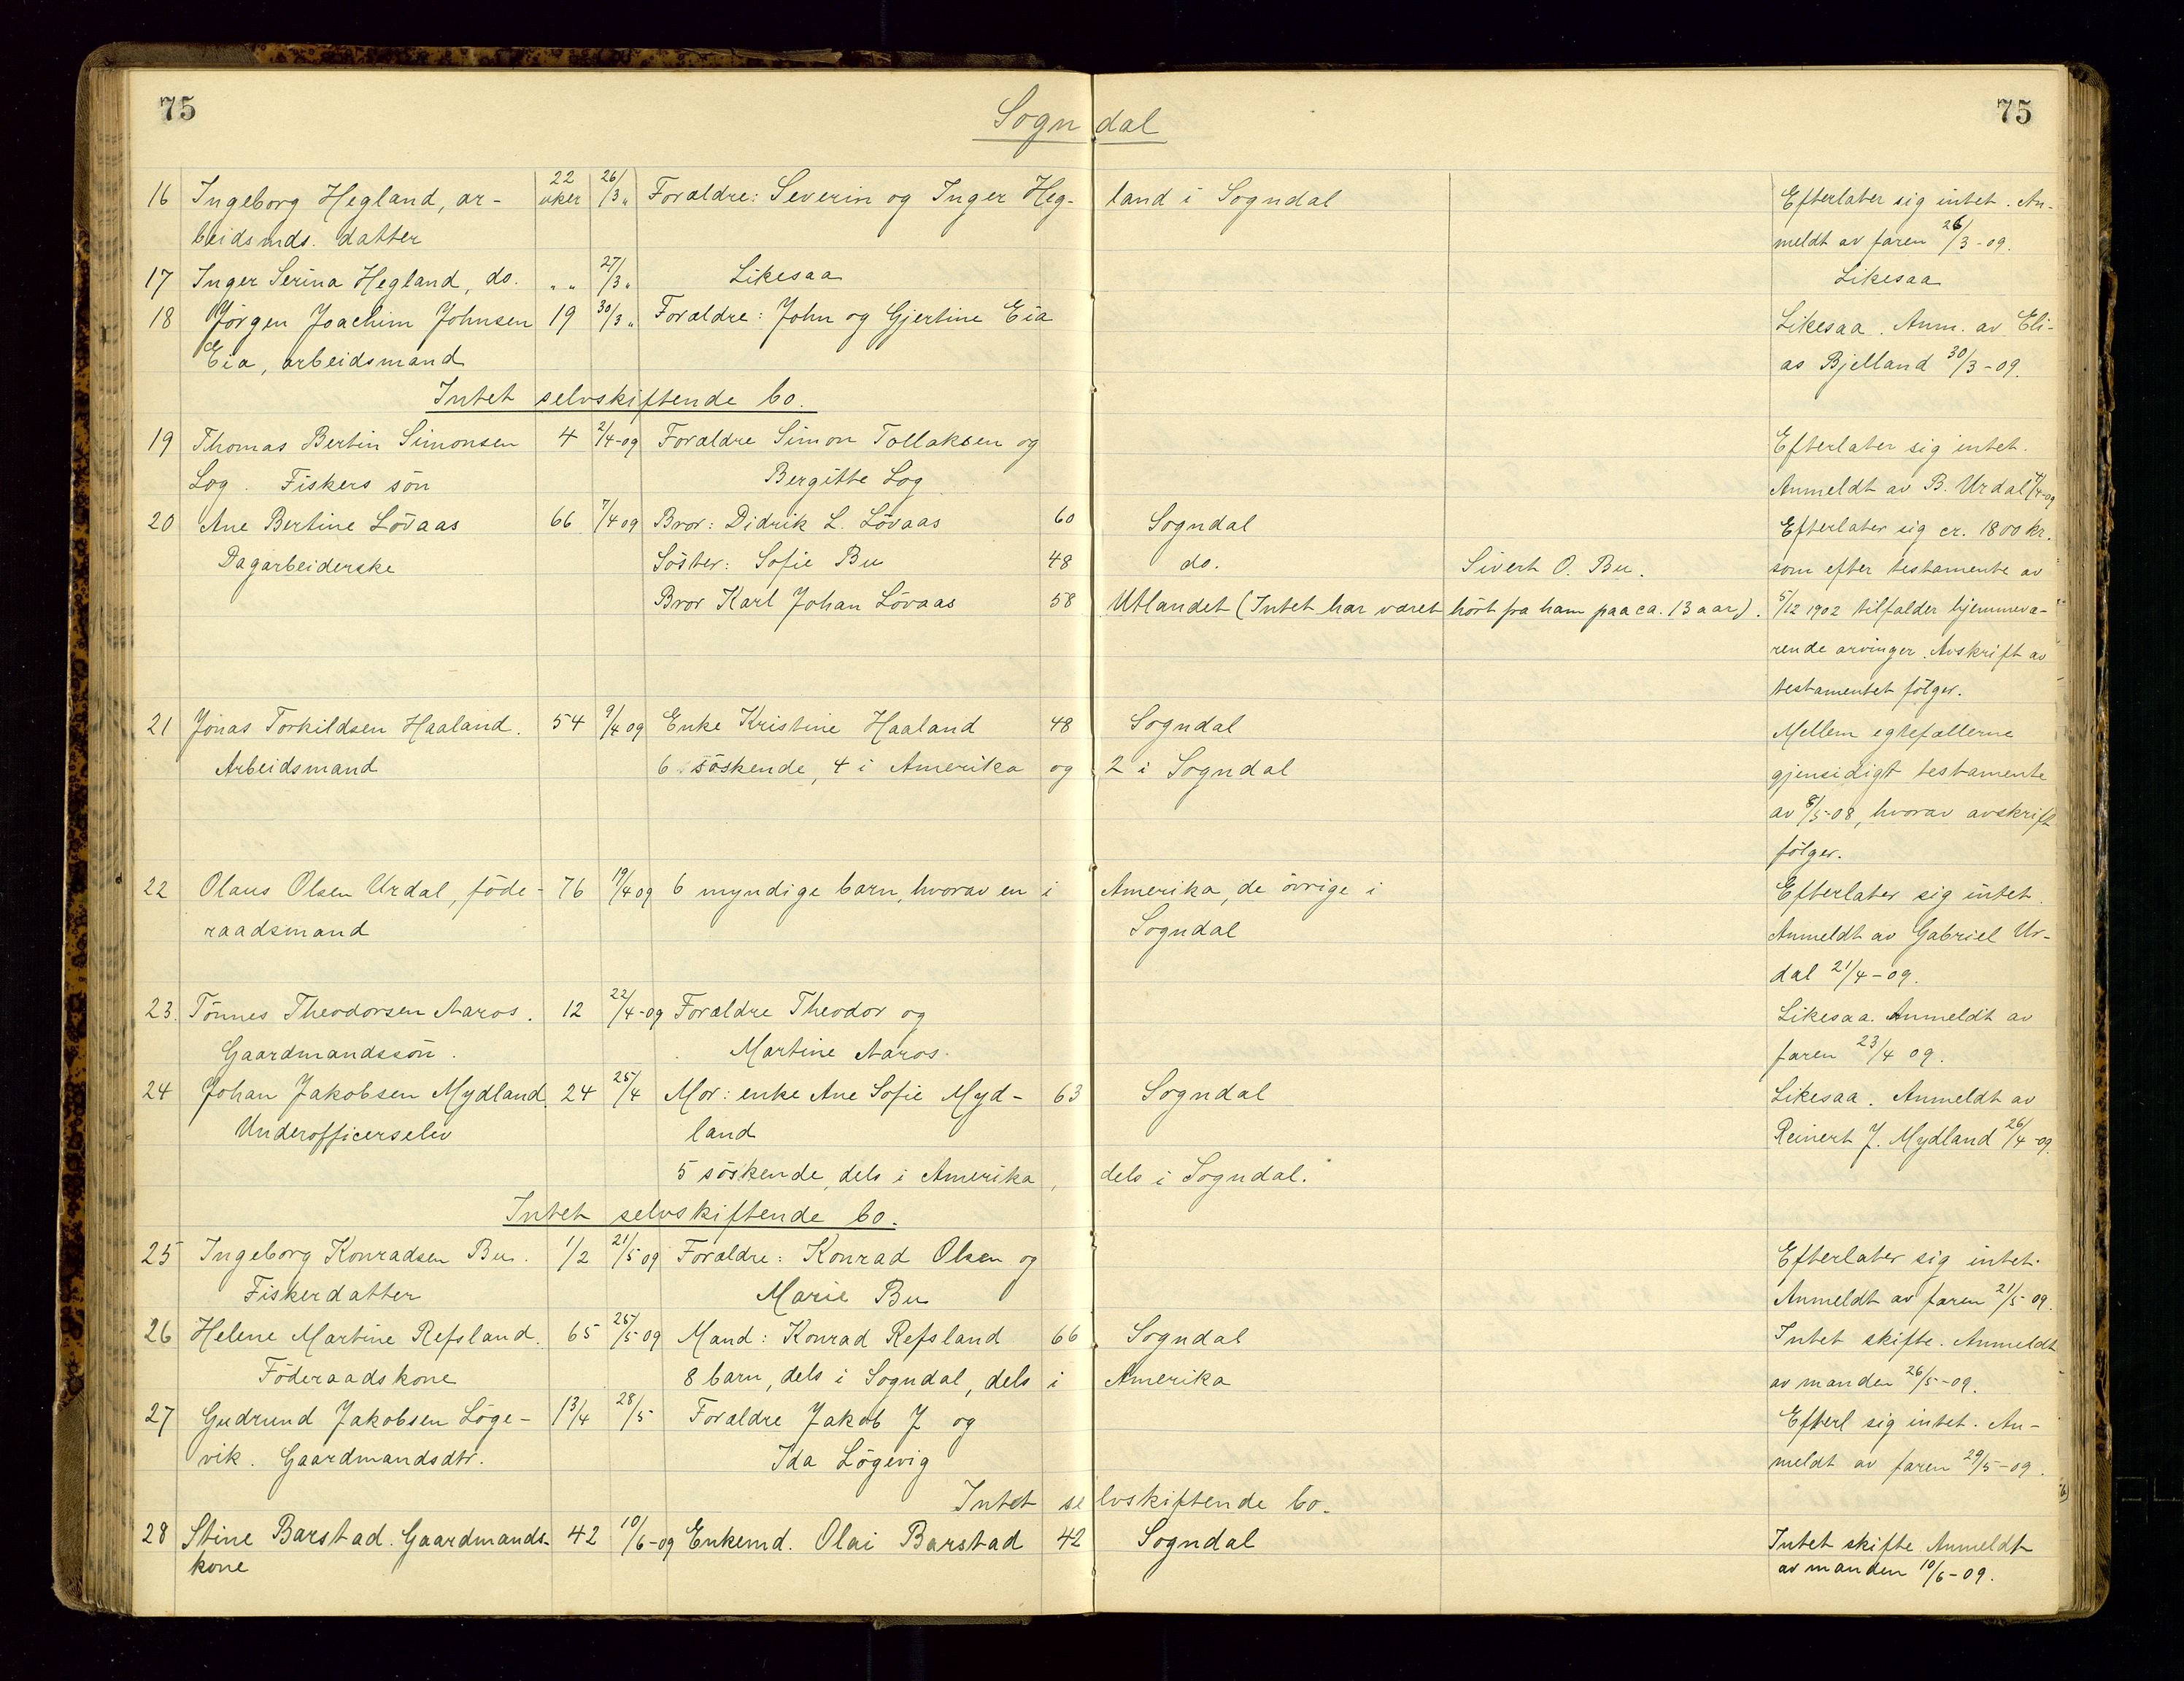 75
Sogndal
75
16 Ingeborg Hegland, ar- 22 uker 26/3 „ Forældre: Severin og Inger Hegland i Sogndal Efterlater sig intet. An-
beidsmds. datter meldt av faren 26/3-09.
17 Inger Serina Hegland, do. „ „ 27/3 „ Likesaa Likesaa
18 Jörgen Joachim Johnsen 19 30/3 „ Forældre: John og Gjertine Eia Likesaa. Anm. av Eli-
Eia, arbeidsmand as Bjelland 30/3-09.
Intet selvskiftende bo.
19 Thomas Bertin Simonsen 4 2/4-09 Forældre Simon Tollaksen og Efterlater sig intet.
Log. Fiskers sön Bergitte Log Anmeldt av B. Urdal /4-09
20 Ane Bertine Lövaas 66 7/4 09 Bror: Didrik L. Lövaas 60 Sogndal Efterlater sig cr. 1800 kr.
Dagarbeiderske Söster: Sofie Bu 48 do. Sivert O. Bu. som efter testamente av
Bror Karl Johan Lövaas 58 Utlandet (Intet har været hört fra ham paa ca. 13 aar). 5/12 1902 tilfalder hjemmevæ-
rende arvinger. Avskrift av
testamentet fölger.
21 Jonas Torkildsen Haaland. 54 9/4 09 Enke Kristine Haaland 48 Sogndal Mellem egtefællerne
Arbeidsmand 6 söskende, 4 i Amerika og 2 i Sogndal gjensidigt testamente
av 8/5-08, hvorav avskrift
fölger.
22 Olaus Olsen Urdal, föde- 76 19/4 09 6 myndige barn, hvorav en i Amerika, de övrige i Efterlater sig intet.
raadsmand Sogndal Anmeldt av Gabriel Ur-
dal 21/4-09.
23. Tönnes Theodorsen Aaros. 12 22/4-09 Forældre Theodor og Likesaa. Anmeldt av
Gaardmandssön. Martine Aaros. faren 23/4 09.
24 Johan Jakobsen Mydland. 24 25/4 Mor: enke Ane Sofie Myd- 63 Sogndal Likesaa. Anmeldt av
Underofficerselev land Reinert J. Mydland 26/4-09.
5 söskende, dels i Amerika, dels i Sogndal.
Intet selvskiftende bo.
25 Ingeborg Konradsen Bu. 1/2 21/5 09 Forældre: Konrad Olsen og Efterlater sig intet.
Fiskerdatter Marie Bu Anmeldt av faren 21/5 09.
26 Helene Martine Refsland. 65 25/5 09 Mand: Konrad Refsland 66 Sogndal Intet skifte. Anmeldt
Föderaadskone 8 barn, dels i Sogndal, dels i Amerika av manden 26/5-09.
27 Gudrund Jakobsen Löge- 1 3/4 28/5 Forældre Jakob J og Efterl sig intet. An-
vik. Gaardmandsdtr. Ida Lögevig meldt av faren 29/5-09.
Intet selvskiftende bo.
28 Stine Barstad. Gaardmands- 42 10/6-09 Enkemd. Olai Barstad 42 Sogndal Intet skifte. Anmeldt
kone av manden 10/6-09.